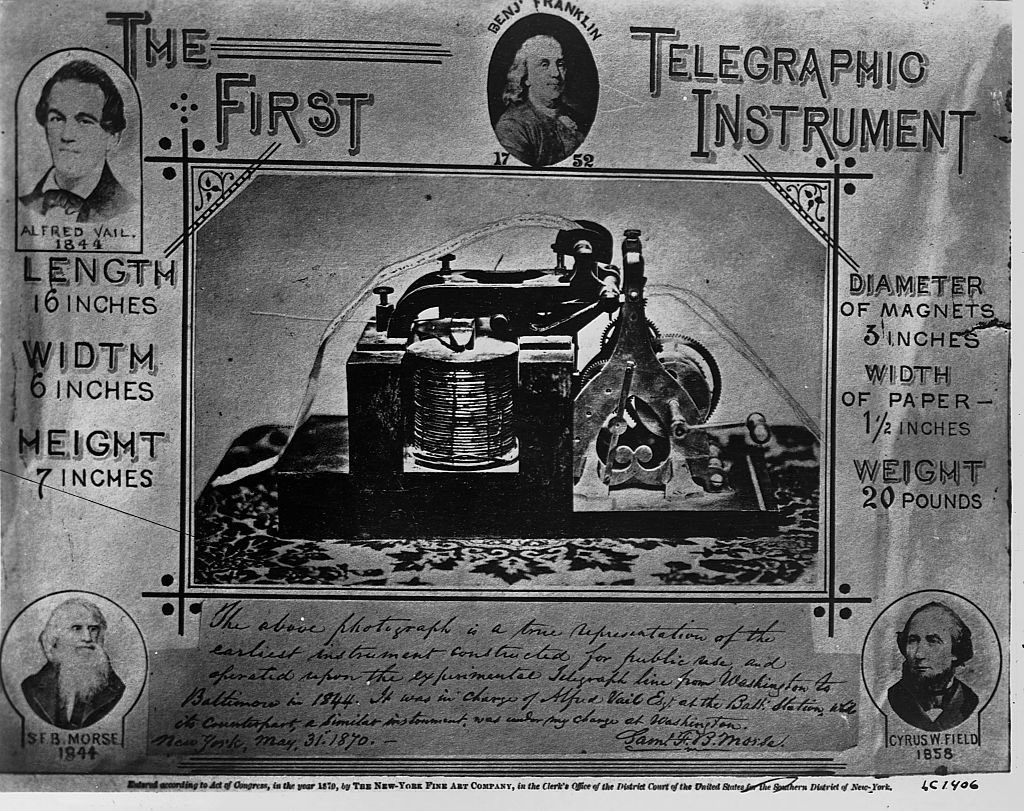 THE FIRST
BENJ' FRANKLIN
1752
TELEGRAPHIC INSTRUMENT
ALFRED VAIL.
1844
LENGTH
16 INCHES
WIDTH
6 INCHES
HEIGHT
7 INCHES
DIAMETER
OF MAGNETS
3 INCHES
WIDTH
OF PAPER –
1 1/2 INCHES
WEIGHT
20 POUNDS
The above photograph is a true representation of the
earliest instrument constructed for public use, and
operated upon the experimental Telegraph line from Washington to
Baltimore in 1844. It was in charge of Alfred Vail Esq at the Balt. Station, and
its counterpart, a similar instrument, was under my charge at Washington.
New York, May, 31. 1870. – Saml. F. B. Morse.
S.F.B. MORSE
1844
CYRUS W. FIELD
1858
Entered according to Act of Congress, in the year 1870, by THE NEW-YORK FINE ART COMPANY, in the Clerk's Office of the District Court of the United States for the Southern District of New-York.
LC1406